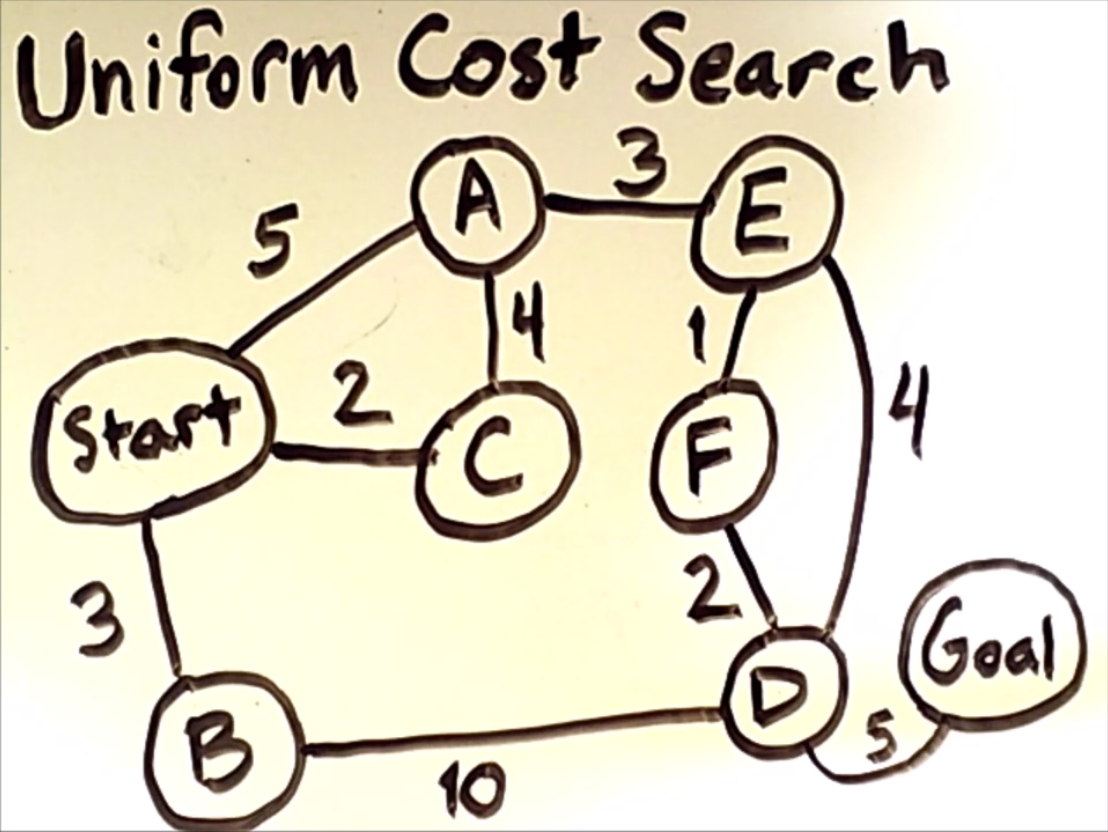 Uniform Cost Search
A 3 E
5
4 1
Start 2 C F 4
3 2
Goal
B D 5
10